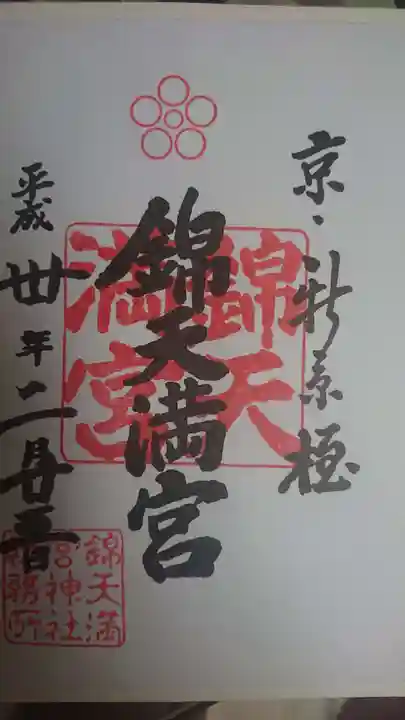 京・新京極
錦天満宮
錦天
満宮
平成卅年二月廿五日
錦天満
宮神社
社務所